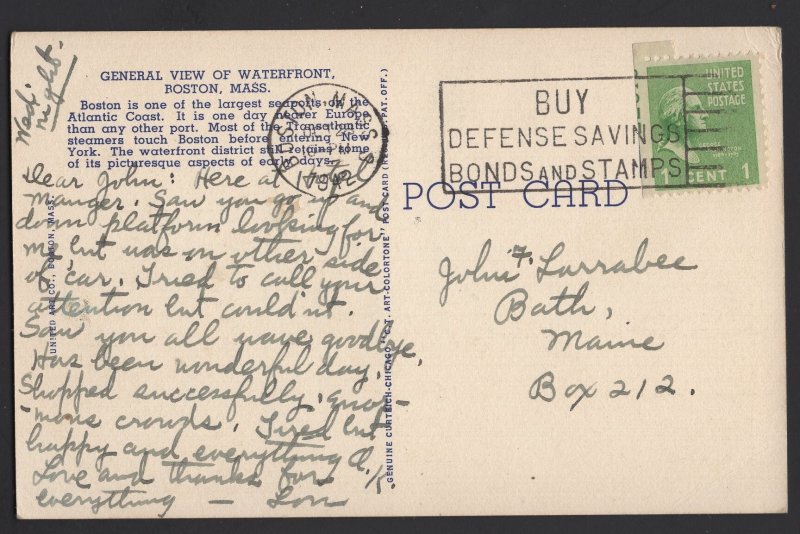 Wed.
night.
GENERAL VIEW OF WATERFRONT,
BOSTON, MASS.
Boston is one of the largest seaports on the
Atlantic Coast. It is one day nearer Europe
than any other port. Most of the Transatlantic
steamers touch Boston before entering New
York. The waterfront district still retains some
of its picturesque aspects of early days.
Dear John: Here at Hotel
Manger. Saw you go up and
down platform looking for
me but was on other side
of car. Tried to call your
attention but couldn't.
Saw you all wave goodbye.
Has been wonderful day.
Shopped successfully, enor-
mous crowds. Tired but
happy and everything O.K.
Love and thanks for
everything — Lou
UNITED ART CO., BOSTON, MASS.
GENUINE CURTEICH-CHICAGO "C.T. ART-COLORTONE" POST CARD (REG. U.S. PAT. OFF.)
BOSTON MASS
1942
BUY
DEFENSE SAVINGS
BONDS AND STAMPS
UNITED
STATES
POSTAGE
1 CENT 1
POST CARD
John F. Larrabee
Bath,
Maine
Box 212.